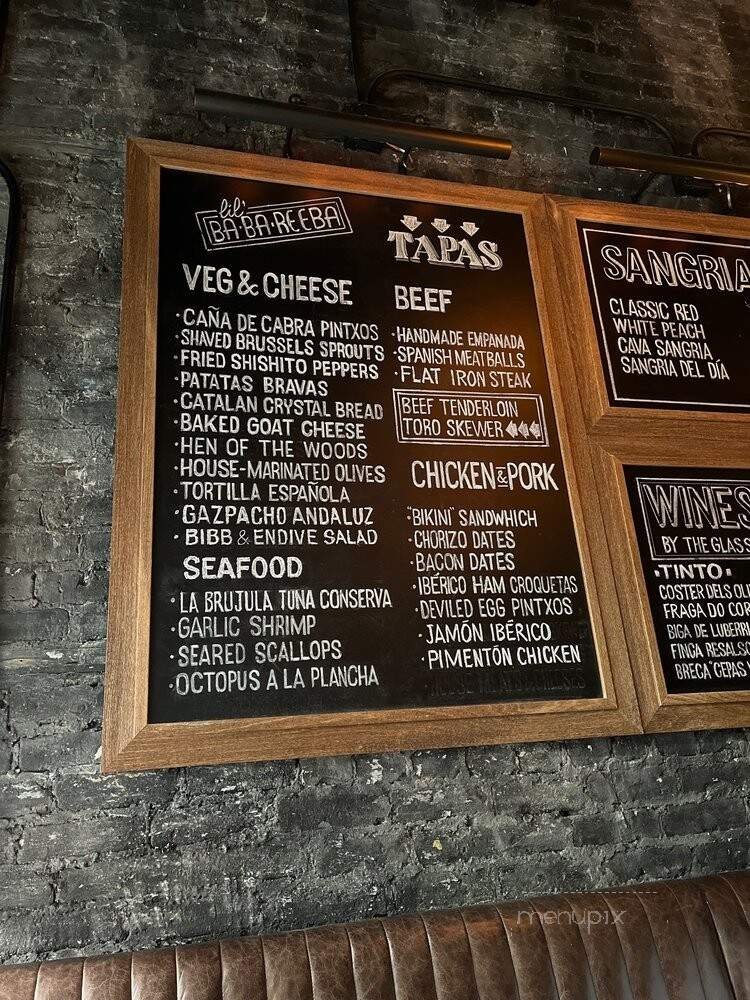 lil'
BA·BA·REEBA
TAPAS
VEG & CHEESE
·CAÑA DE CABRA PINTXOS
·SHAVED BRUSSELS SPROUTS
·FRIED SHISHITO PEPPERS
·PATATAS BRAVAS
·CATALAN CRYSTAL BREAD
·BAKED GOAT CHEESE
·HEN OF THE WOODS
·HOUSE-MARINATED OLIVES
·TORTILLA ESPAÑOLA
·GAZPACHO ANDALUZ
·BIBB & ENDIVE SALAD
SEAFOOD
·LA BRUJULA TUNA CONSERVA
·GARLIC SHRIMP
·SEARED SCALLOPS
·OCTOPUS A LA PLANCHA
BEEF
·HANDMADE EMPANADA
·SPANISH MEATBALLS
·FLAT IRON STEAK
BEEF TENDERLOIN
TORO SKEWER
CHICKEN & PORK
·"BIKINI" SANDWHICH
·CHORIZO DATES
·BACON DATES
·IBÉRICO HAM CROQUETAS
·DEVILED EGG PINTXOS
·JAMÓN IBÉRICO
·PIMENTÓN CHICKEN
SANGRIA
CLASSIC RED
WHITE PEACH
CAVA SANGRIA
SANGRIA DEL DÍA
WINES
BY THE GLASS
·TINTO·
COSTER DELS
FRAGA DO
BIGA DE
FINCA
BRECA "CEPAS
menupix